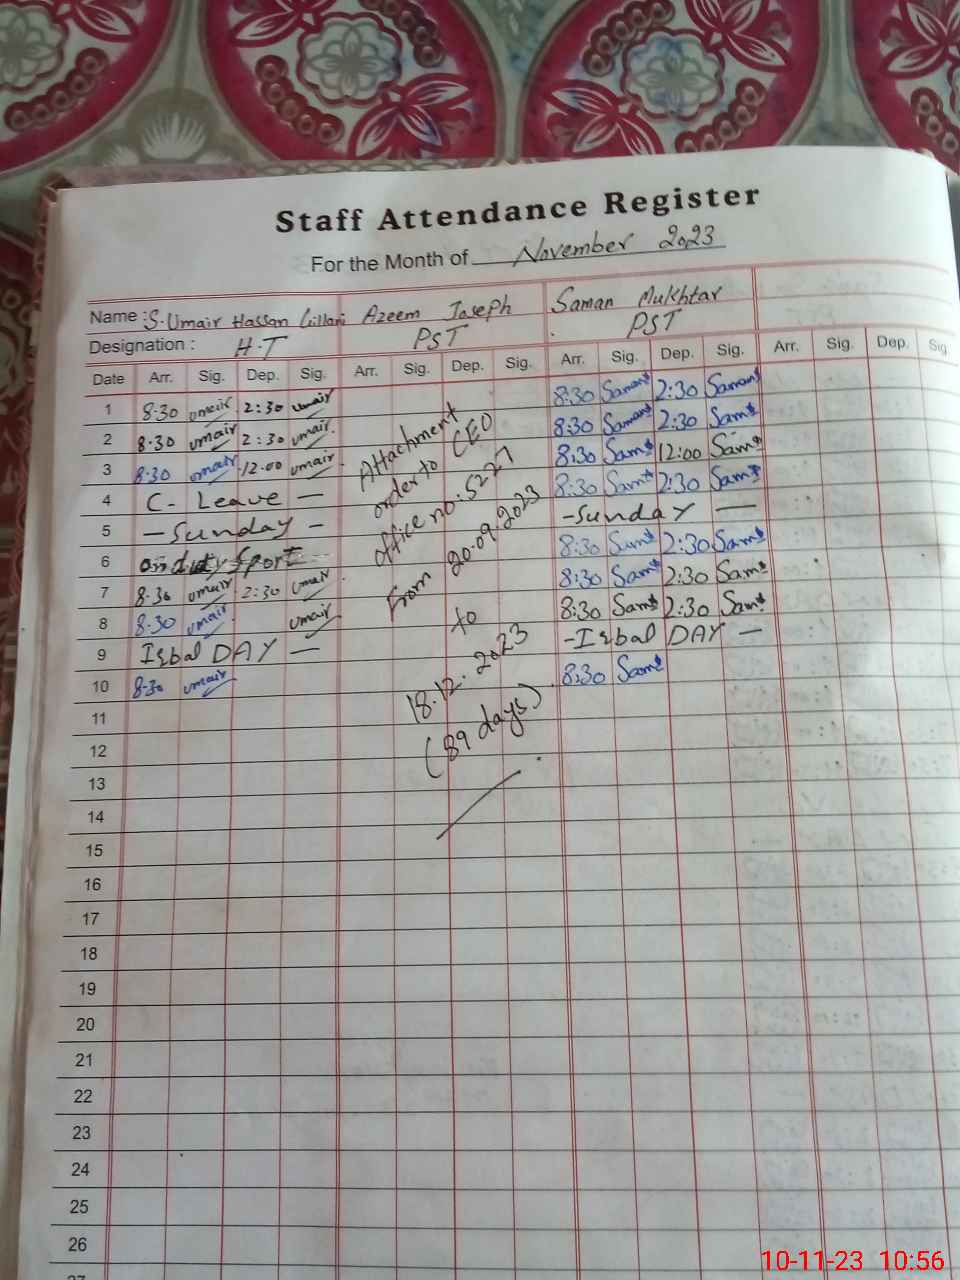 Staff Attendance Register
For the Month of November 2023
Name : S. Umair Hassan Gillani Azeem Joseph Saman Mukhtar
Designation : H.T PST PST
Date Arr. Sig. Dep. Sig. Arr. Sig. Dep. Sig. Arr. Sig. Dep. Sig. Arr. Sig. Dep. Sig
1 8:30 umair 2:30 umair 8:30 Saman 2:30 Saman
2 8:30 umair 2:30 umair 8:30 Saman 2:30 Sam
3 8:30 umair 12:00 umair 8:30 Sam 12:00 Sam
4 C- Leave — 8:30 Sam 2:30 Sam
5 — Sunday - - Sunday —
6 on duty Sport 8:30 Sam 2:30 Sam
7 8:30 umair 2:30 umair 8:30 Sam 2:30 Sam
8 8:30 umair umair 8:30 Sam 2:30 Sam
9 Iqbal DAY — - Iqbal DAY —
10 8:30 umair 8:30 Sam
Attachment
order to CEO
office no. 5227
From 20.09.2023
to
18.12.2023
(89 days)
11
12
13
14
15
16
17
18
19
20
21
22
23
24
25
26
27
10-11-23 10:56